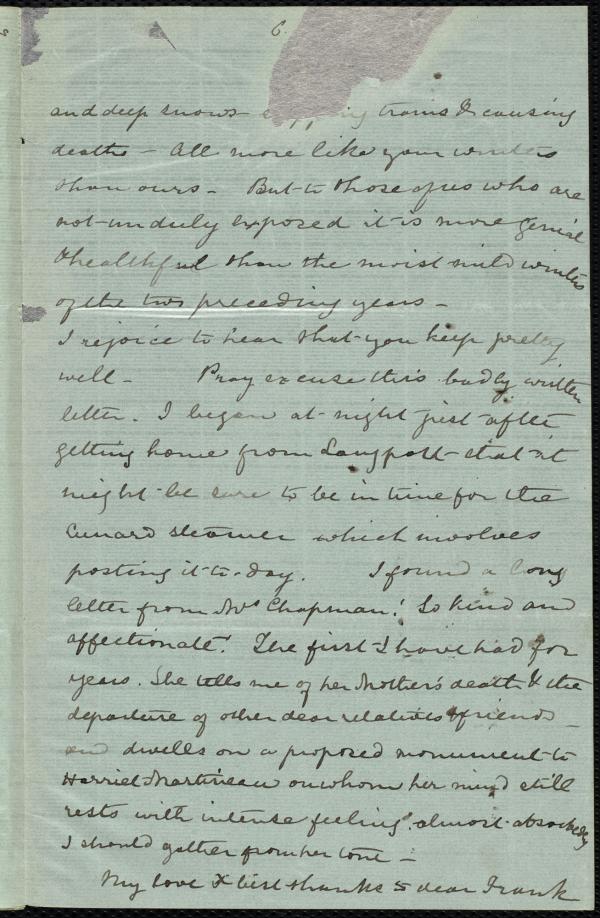 6.
and deep snows - stopping trains & causing
deaths - All more like your winters
than ours - But to those of us who are
not unduly exposed it is more genial
& healthful than the moist mild winters
of the two preceding years -
I rejoice to hear that you keep pretty
well - Pray excuse this badly written
letter. I began at night just after
getting home from Langport - that it
might be sure to be in time for the
Cunard steamer which involves
posting it to-day. I found a long
letter from Mrs Chapman! So kind and
affectionate! The first I have had for
years. She tells me of her Mother's death & the
departure of other dear relatives & friends -
and dwells on a proposed monument to
Harriet Martineau on whom her mind still
rests with intense feeling, almost absorbedly
I should gather from her tone -
My love & best thanks to dear Frank